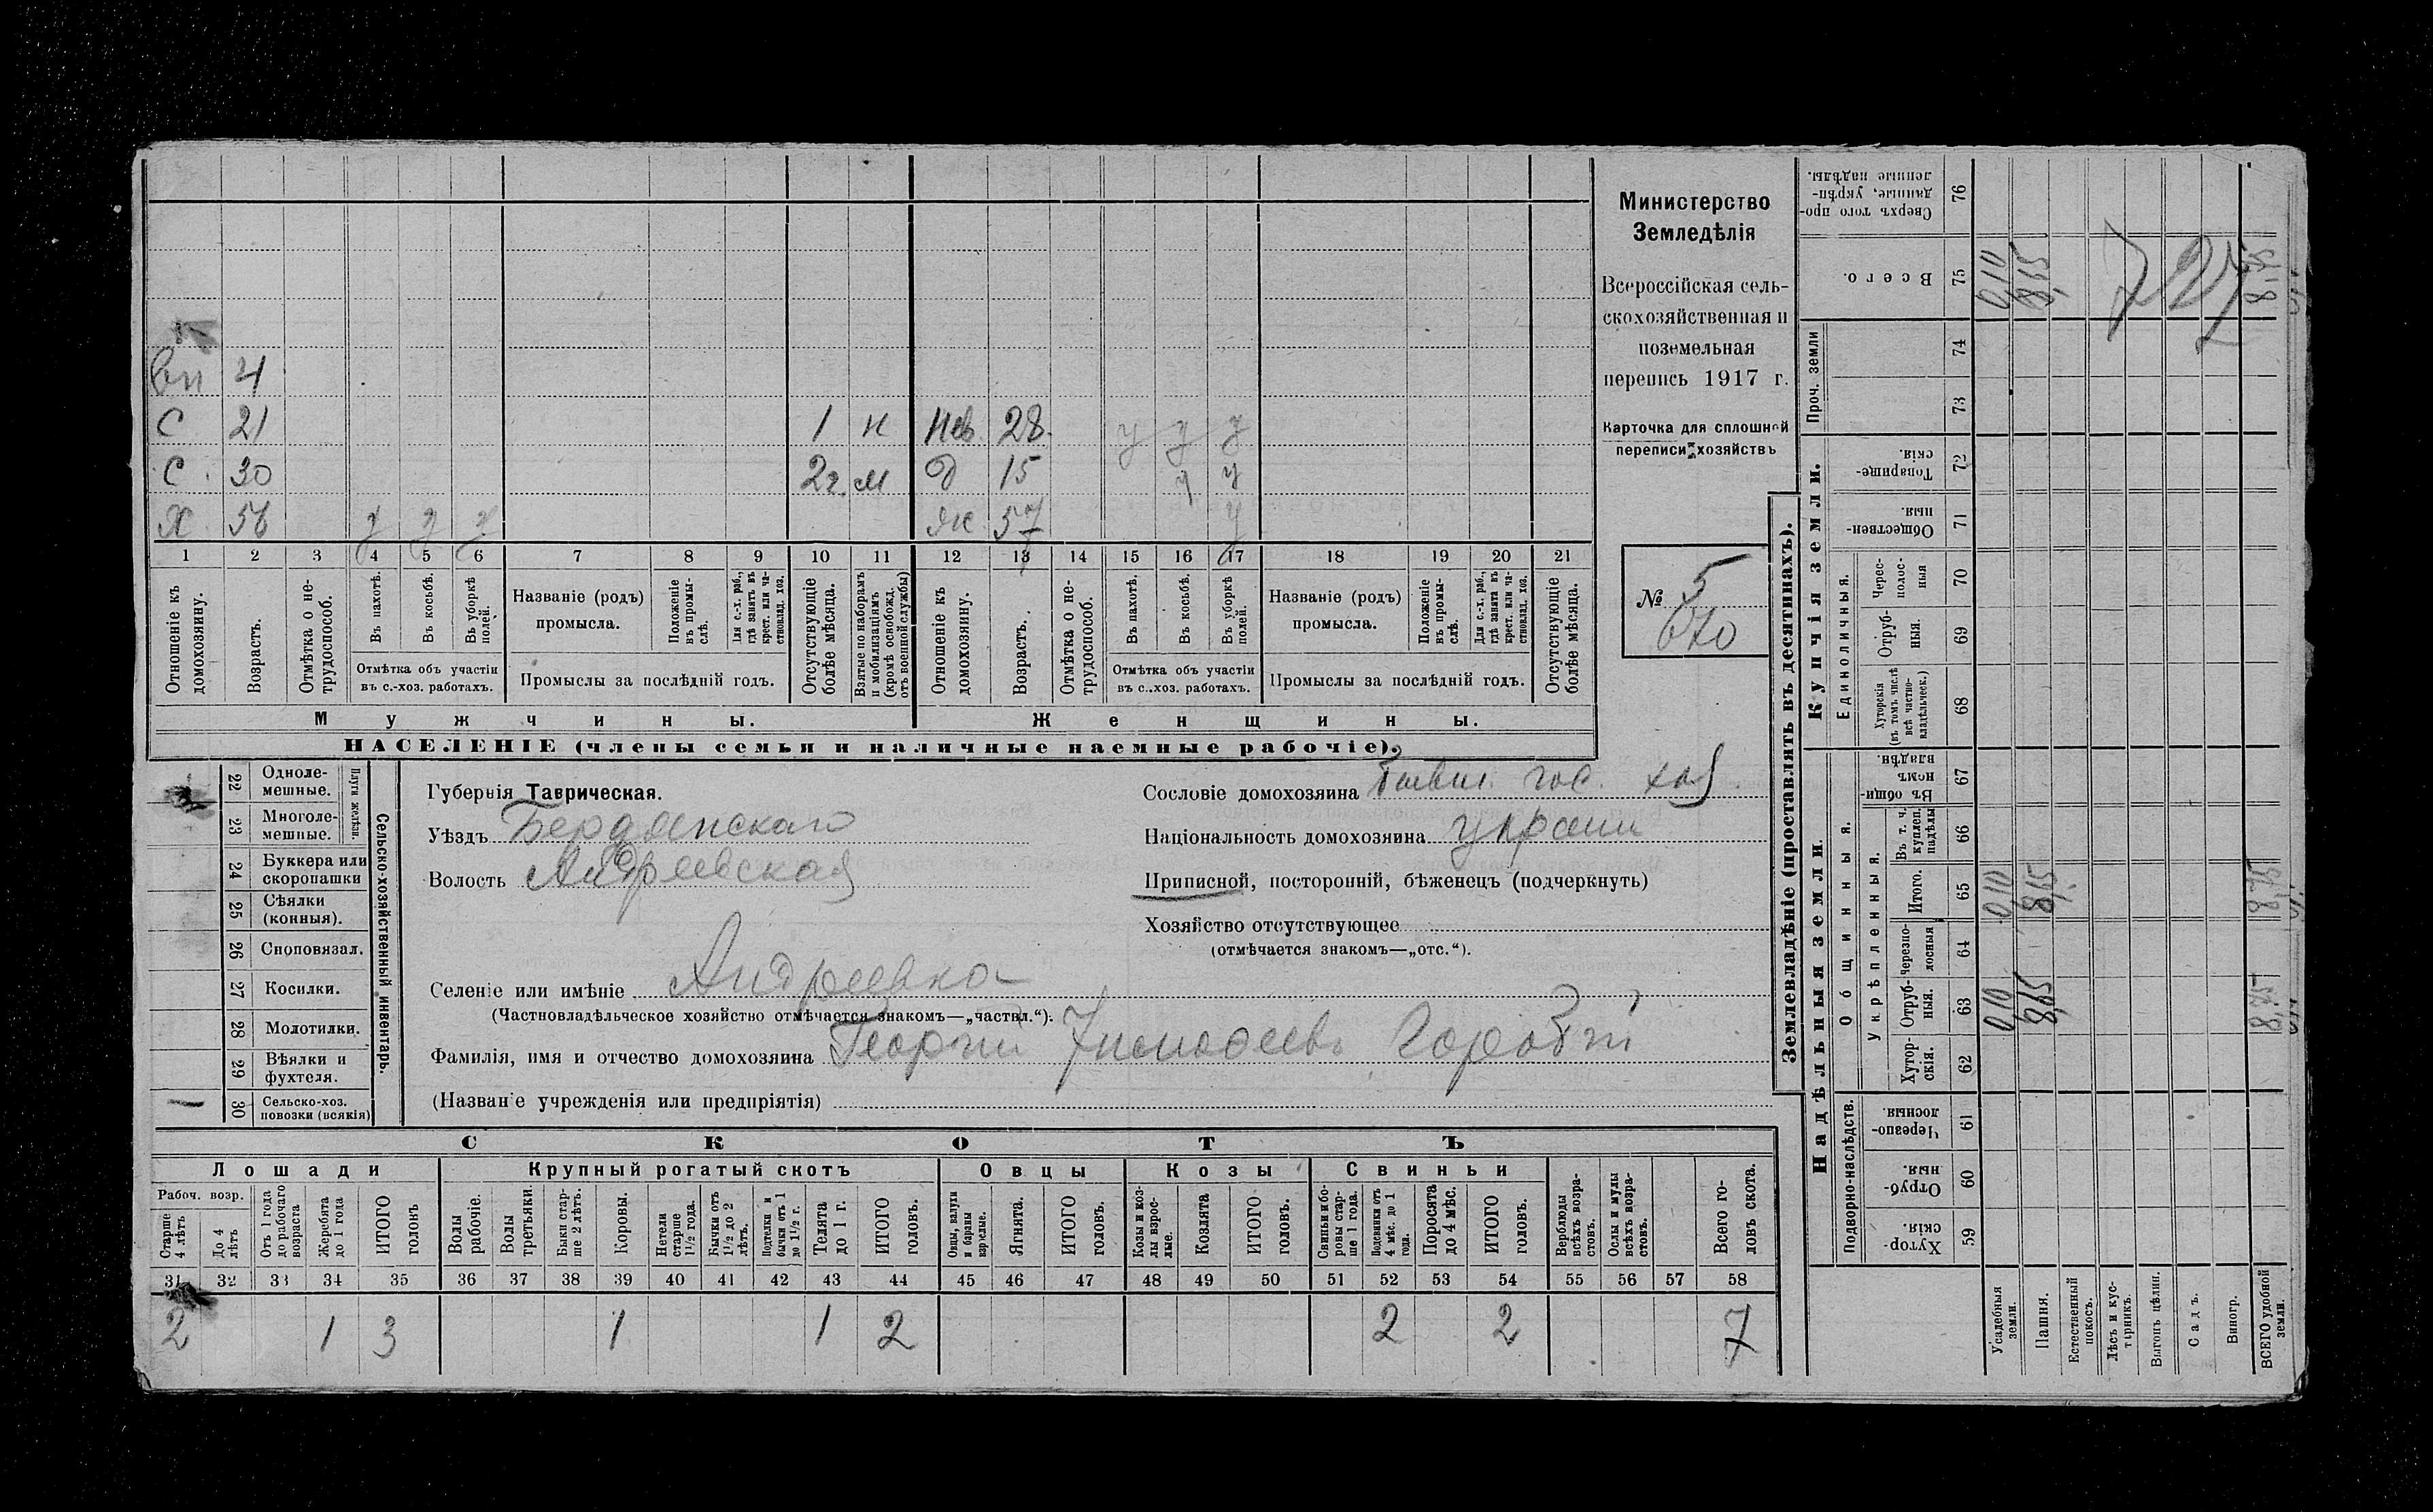 Вн 4
С 21 1 н Нев. 28 у у у
С. 30 2 г. м Д 15 у у
Х 56 у у у Ж 57 у
1 2 3 4 5 6 7 8 9 10 11 12 13 14 15 16 17 18 19 20 21
Отношеніе къ домохозяину.
Возрастъ.
Отмѣтка о не-
трудоспособ.
Въ пахотѣ.
Въ косьбѣ.
Въ уборкѣ
полей.
Отмѣтка объ участіи
въ с.-хоз. работахъ.
Названіе (родъ)
промысла.
Положеніе
въ промы-
слѣ.
Для с.-х. раб.,
гдѣ занятъ въ
крест. или ча-
стновлад. хоз.
Промыслы за послѣдній годъ.
Отсутствующіе
болѣе мѣсяца.
Взятые по наборамъ
и мобилизаціямъ
(кромѣ освобожд.
отъ военной службы)
Отношеніе къ
домохозяину.
Возрастъ.
Отмѣтка о не-
трудоспособ.
Въ пахотѣ.
Въ косьбѣ.
Въ уборкѣ
полей.
Отмѣтка объ участіи
въ с.-хоз. работахъ.
Названіе (родъ)
промысла.
Положеніе
въ промы-
слѣ.
Для с.-х. раб.,
гдѣ занята въ
крест. или ча-
стновлад. хоз.
Промыслы за послѣдній годъ.
Отсутствующіе
болѣе мѣсяца.
Мужчины.
Женщины.
НАСЕЛЕНІЕ (члены семьи и наличные наемные рабочіе).
Министерство
Земледѣлія
Всероссійская сель-
скохозяйственная и
поземельная
перепись 1917 г.
Карточка для сплошной
переписи хозяйствъ
№ 5
670
22 Одноле-
мешные.
23 Многоле-
мешные.
Плуги желѣзн.
24 Буккера или
скоропашки
25 Сѣялки
(конныя).
26 Сноповязал.
27 Косилки.
28 Молотилки.
29 Вѣялки и
фухтеля.
1 30 Сельско-хоз.
повозки (всякія)
Сельско-хозяйственный инвентарь.
Губернія Таврическая.
Уѣздъ Бердянскаго
Волость Андреевская
Селеніе или имѣніе Андреевка
(Частновладѣльческое хозяйство отмѣчается знакомъ—„частвл.“).
Фамилія, имя и отчество домохозяина Георгій
(Названіе учрежденія или предпріятія)
Сословіе домохозяина бывш. гос.
Національность домохозяина украин
Приписной, посторонній, бѣженецъ (подчеркнуть)
Хозяйство отсутствующее
(отмѣчается знакомъ—„отс.“).
СКОТЪ
Лошади Крупный рогатый скотъ Овцы Козы Свиньи
Рабоч. возр.
Старше
4 лѣтъ
До 4
лѣтъ
Отъ 1 года
до рабочаго
возраста
Жеребята
до 1 года
ИТОГО
головъ
Волы
рабочіе.
Волы
третьяки.
Быки стар-
ше 2 лѣтъ.
Коровы.
Нетели
старше
1½ года.
Бычки отъ
1½ до 2
лѣтъ.
Подтелки и
бычки отъ 1
до 1½ г.
Телята
до 1 г.
ИТОГО
головъ.
Овцы, валухи
и бараны
взрослые.
Ягнята.
ИТОГО
головъ.
Козы и коз-
лы взрос-
лые.
Козлята
ИТОГО
головъ.
Свиньи и бо-
ровы стар-
ше 1 года.
Подсвинки отъ
4 мѣс. до 1
года.
Поросята
до 4 мѣс.
ИТОГО
головъ.
Верблюды
всѣхъ возра-
стовъ.
Ослы и мулы
всѣхъ возра-
стовъ.
Всего го-
ловъ скота.
31 32 33 34 35 36 37 38 39 40 41 42 43 44 45 46 47 48 49 50 51 52 53 54 55 56 57 58
2 1 3 1 1 2 2 2 7
Землевладѣніе (проставлять въ десятинахъ).
Надѣльныя земли.
Купчія земли.
Проч. земли
Подворно-наслѣдств.
Общинныя.
Укрѣпленныя.
Единоличныя.
Сверхъ того про-
данные, укрѣп-
ленные надѣлы. 76
Всего. 75 0,10 8,65 8,75
727
74
73
Товарище-
скія. 72
Обществен-
ныя. 71
Черес-
полос-
ныя 70
Отруб-
ныя. 69
Хуторскія
(въ томъ числѣ
всѣ частно-
владѣльческ.) 68
Въ общи-
номъ
владѣн. 67
Въ т. ч.
куплен.
надѣлы 66
Итого. 65 0,10 8,65 8,75
Черезпо-
лосныя 64
Отруб-
ныя. 63 0,10 8,65 8,75
Хутор-
скія. 62
Черезпо-
лосныя. 61
Отруб-
ныя. 60
Хутор-
скія. 59
Усадебныя
земли.
Пашня.
Естественный
покосъ.
Лѣсъ и кус-
тарникъ.
Выгонъ цѣлин.
Садъ.
Виногр.
ВСЕГО удобной
земли.